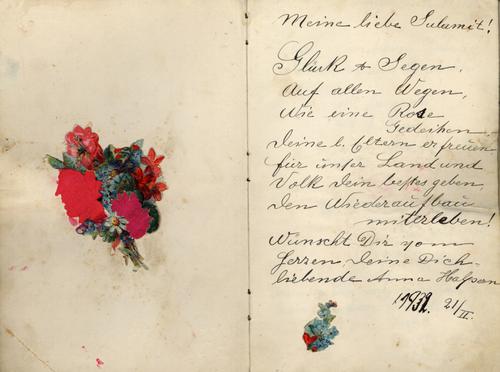 Meine liebe Sulamit!
Glück & Segen,
Auf allen Wegen,
Wie eine Rose
Gedeihen,
Deine l. Eltern erfreuen
für unser Land und
Volk Dein bestes geben,
Den Wiederaufbau
miterleben!
Wünscht Dir vom
Herzen Deine Dich-
liebende Anna Halpern
1932. 21/II.